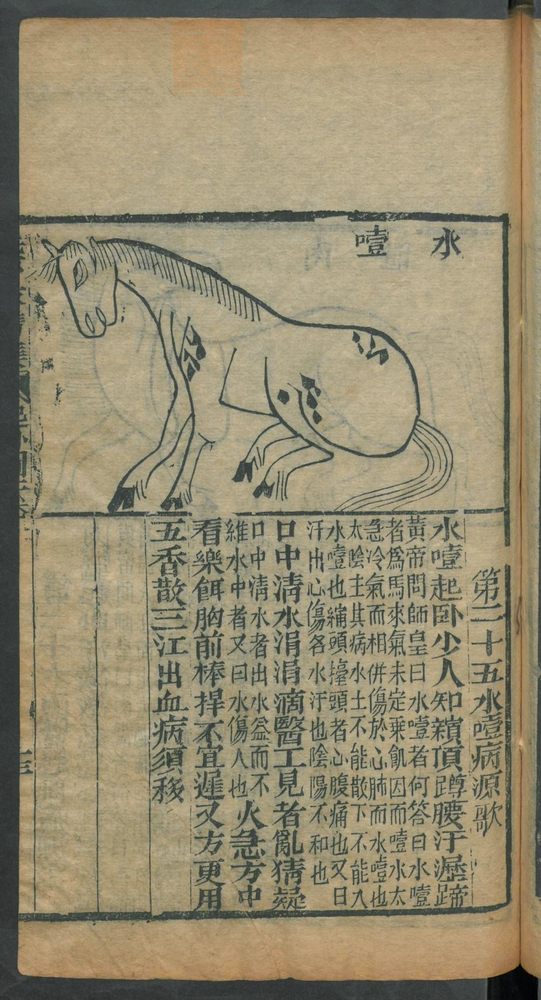 水噎
第二十五水噎病源歌
水噎起卧少人知頴頂蹲腰汗瀝蹄
黃帝問師皇曰水噎者何答曰水噎
者爲馬來氣未定乗飢因而噎水太
急冷氣而相併傷於心肺而水噎也
太陰主其病水土不能散下不能入
水噎也縮頭擡頭者心腹痛也又曰
汗出心傷各水汗也陰陽不和也
口中清水涓涓滴醫工見者亂猜疑
口中清水者出水益而不
維水中者又曰水傷人也
火急方中
看藥餌胸前棒捍不宜遲又方更用
五香散三江出血病須移